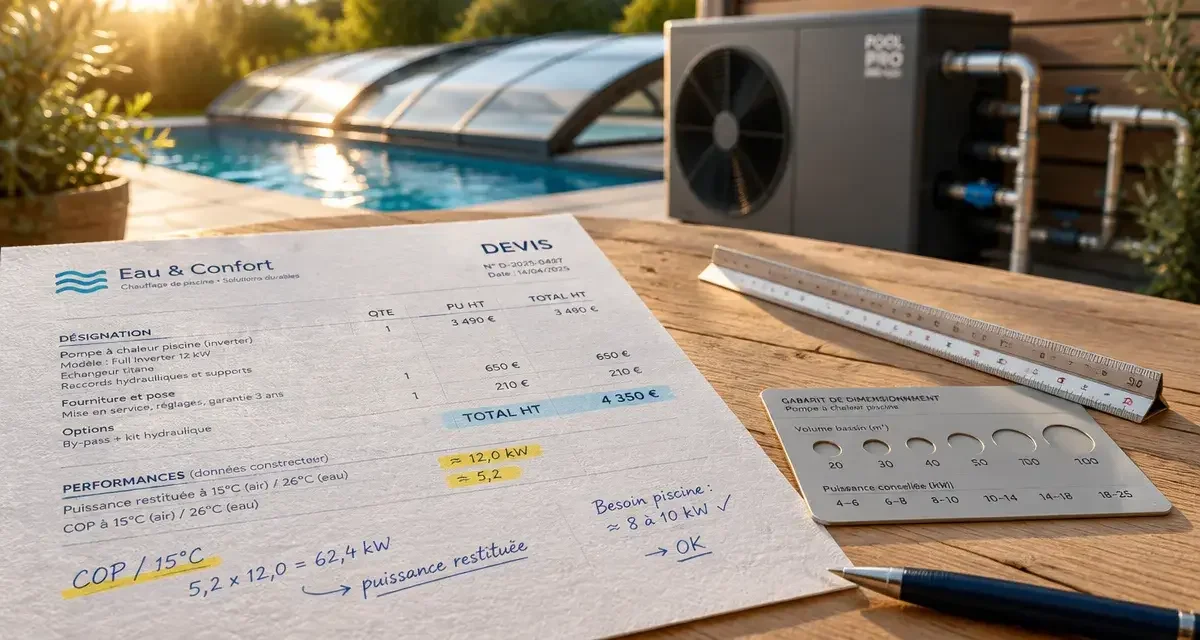 POOL
PRO
Eau & Confort
Chauffage de piscine • Solutions durables
DEVIS
N° D-2025-0487
Date : 14/04/2025
DÉSIGNATION QTE PU HT TOTAL HT
Pompe à chaleur piscine (inverter) 1 3 490 € 3 490 €
Modèle : Full Inverter 12 kW
Echangeur titane
Raccords hydrauliques et supports
Fourniture et pose 1 650 € 650 €
Mise en service, réglages, garantie 3 ans
Options 1 210 € 210 €
By-pass + kit hydraulique
TOTAL HT 4 350 €
PERFORMANCES (données constrecteur)
Puissance restituée à 15°C (air) / 26°C (eau) ≈ 12,0 kW
COP à 15°C (air) / 26°C (eau) ≈ 5,2
COP / 15°C
5,2 x 12,0 = 62,4 kW
→ puissance restituëe
Besoin piscine :
≈ 8 à 10 kW ✓
→ OK
GABARIT DE DIMENSIONNMENT
Pompe à chaleur piscine
Volume bassin (m³)
20 30 40 50 100 100
Puissance conseliée (kW)
4–6 6–8 8–10 10–14 14–18 18–25